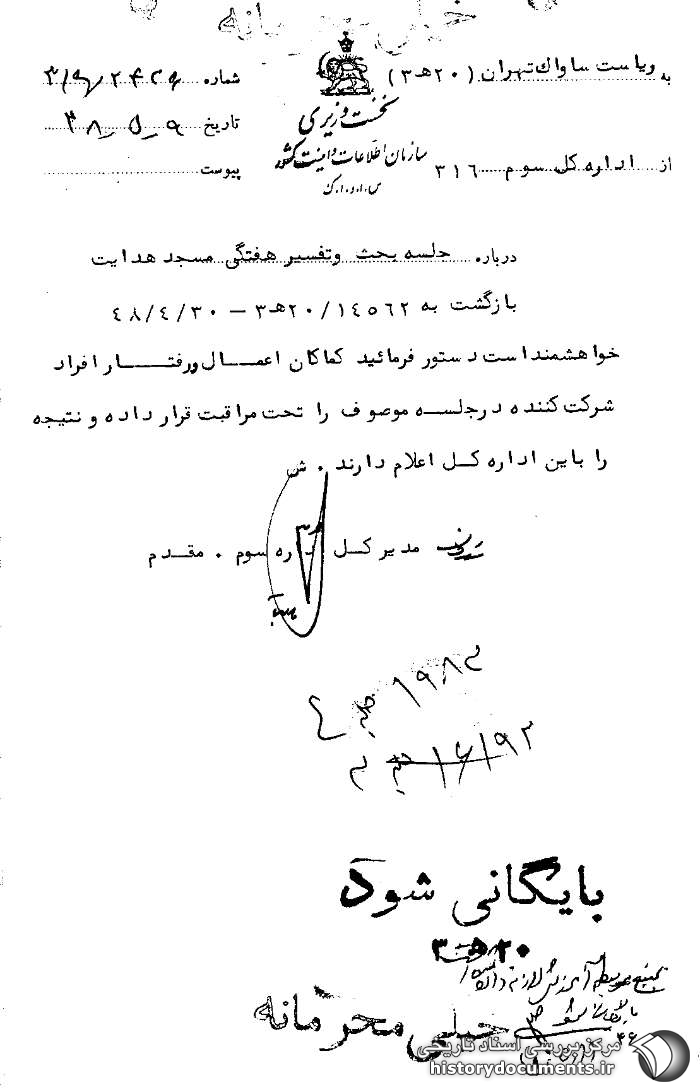 خیلی محرمانه
به ریاست ساواك تهران (۲۰ هـ ۳)
نخست وزیری
سازمان اطلاعات و امنیت کشور
س.ا.و.ا.ك
شماره
تاریخ
پیوست
از اداره کل سوم ۳۱٦
درباره جلسه بحث و تفسیر هفتگی مسجد هدایت
بازگشت به ۲۰/۱٤٥٦۲هـ۳ – ٤٨/٤/۳۰
خواهشمند است دستور فرمائید کماکان اعمال و رفتار افراد
شرکت کننده در جلسه موصوف را تحت مراقبت قرار داده و نتیجه
را باین اداره کل اعلام دارند . ش
مدیر کل اداره سوم . مقدم
بایگانی شود
۲۰ هـ ۳
خیلی محرمانه
مرکز بررسی اسناد تاریخی
historydocuments.ir